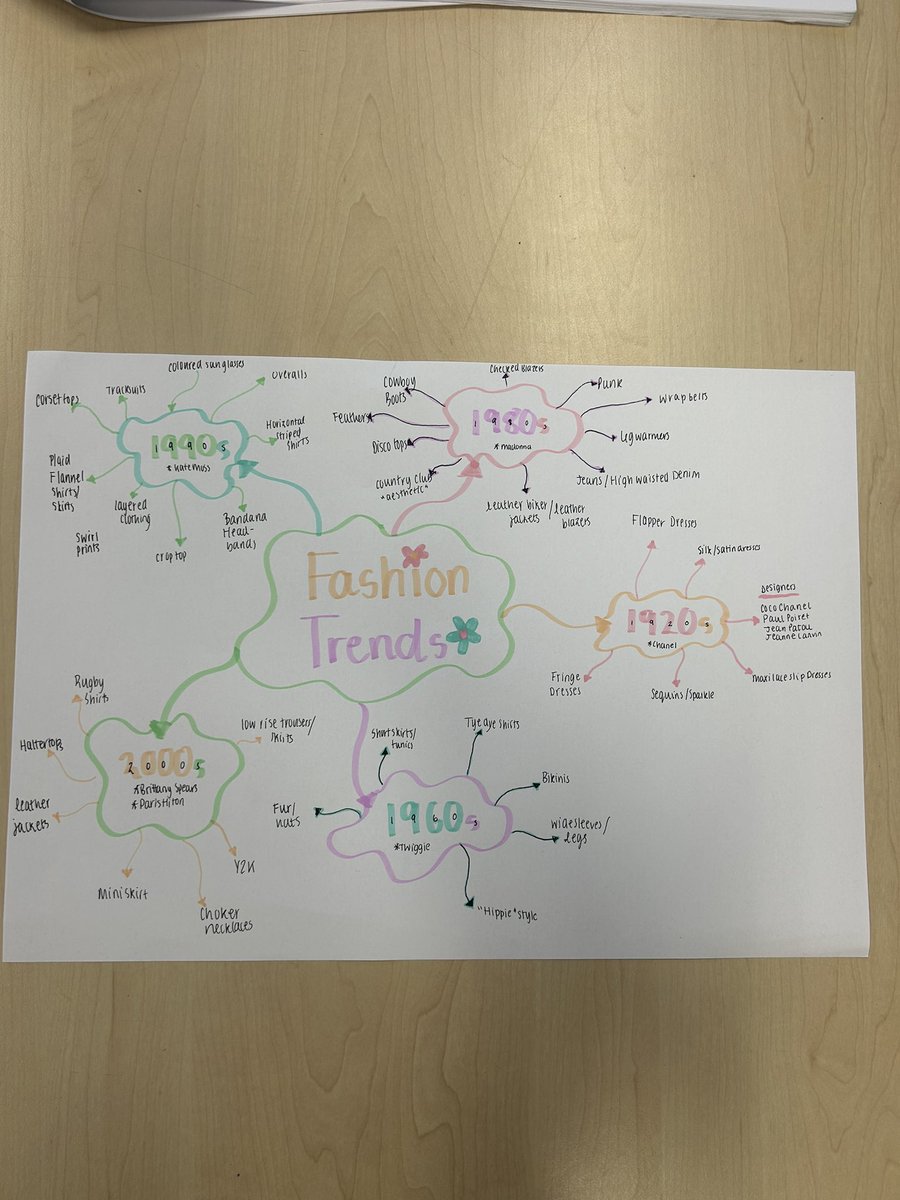 Fashion
Trends
1990s
*Kate Moss
Corset tops
Tracksuits
Coloured sunglasses
Overalls
Horizontal
Striped
Shirts
Bandana
Head-
bands
Crop top
layered
clothing
Swirl
prints
Plaid
Flannel
Shirts/
Skirts
1980s
*Madonna
Cowboy
Boots
Checked Blazers
Punk
Wrap belts
Leg warmers
Jeans/High Waisted Denim
Leather biker/leather
jackets/ blazers
Country Club
"aesthetic"
Disco tops
Feathers
1920s
*Chanel
Flapper Dresses
Silk/satin dresses
Designers
Coco Chanel
Paul Poiret
Jean Patou
Jeanne Lanvin
Maxi lace slip Dresses
Sequins/Sparkle
Fringe
Dresses
1960s
*Twiggie
Short skirts/
tunics
Tye dye shirts
Bikinis
Wide sleeves/
legs
"Hippie" style
Fur/
2000s
*Brittany Spears
*Paris Hiron
Rugby
Shirts
low rise trousers/
skirts
Y2K
Choker
necklaces
Mini skirt
leather
jackets
Halter tops